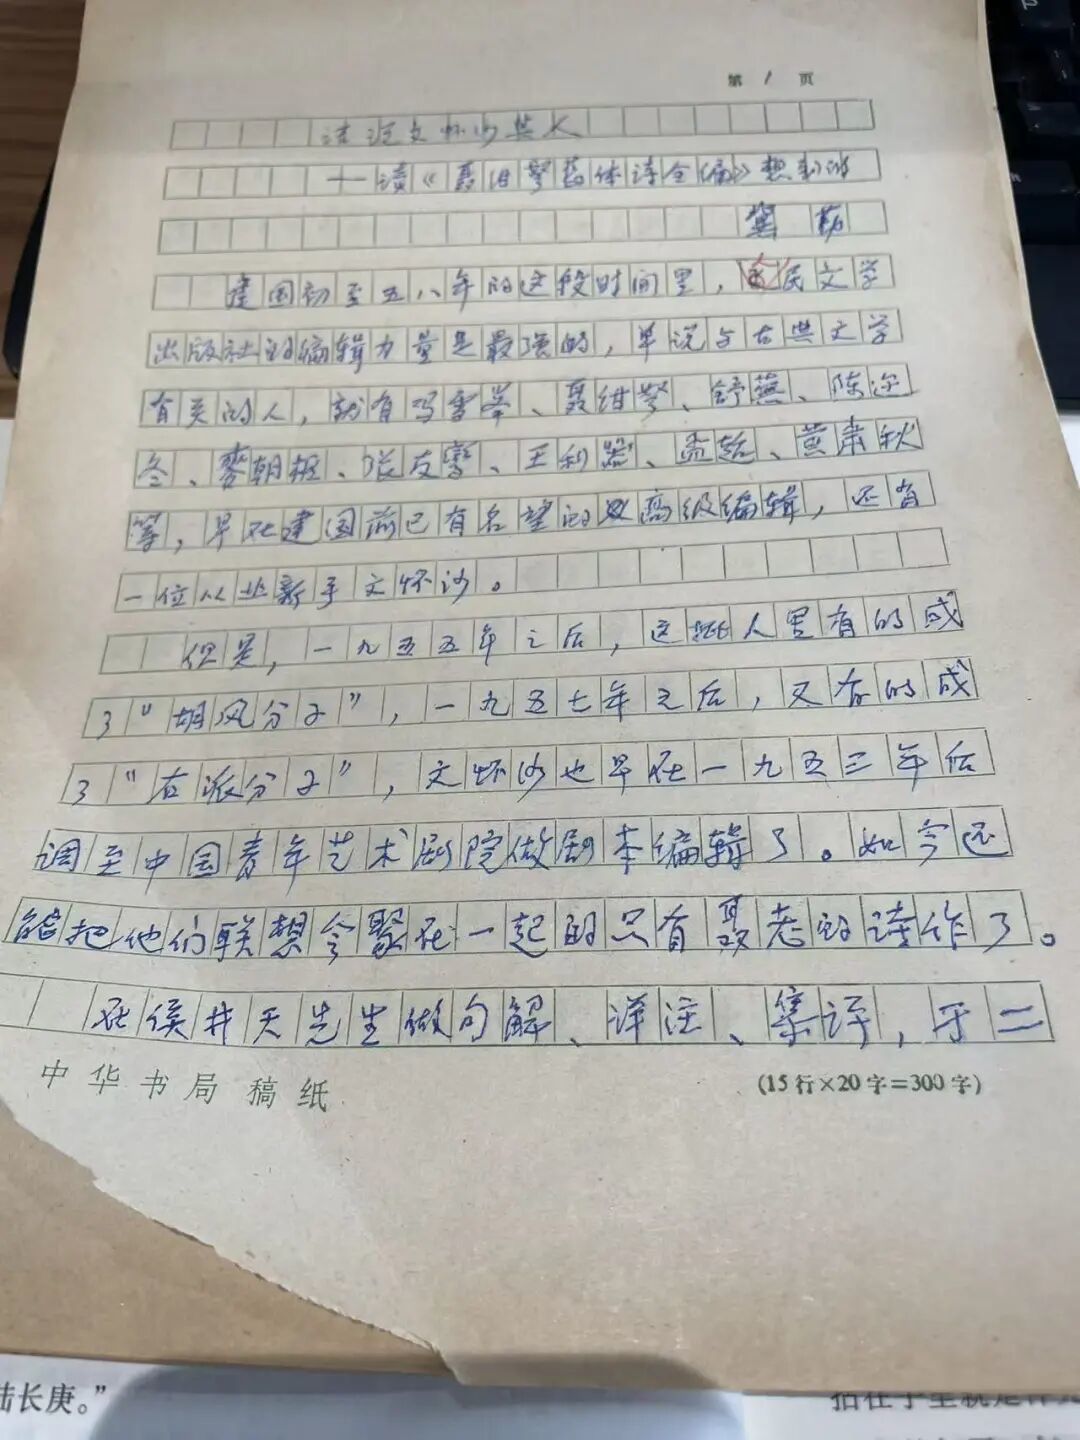 第 1 页
诗说文怀沙其人
——读《聂绀弩旧体诗全编》想到的
黛 茀
建国初至五八年的这段时间里，人民文学
出版社的编辑力量是最强的，单说与古典文学
有关的人，就有冯雪峰、聂绀弩、舒芜、陈迩
冬、麦朝枢、张友鸾、王利器、孟超、黄肃秋
等，早在建国前已有名望的高级编辑，还有
一位从业新手文怀沙。
但是，一九五五年之后，这些人里有的成
了“胡风分子”，一九五七年之后，又有的成
了“右派分子”，文怀沙也早在一九五三年后
调至中国青年艺术剧院做剧本编辑了。如今还
能把他们联想会聚在一起的只有聂老的诗作了。
在侯井天先生做句解、详注、集评，于二
中华书局稿纸
(15行×20字=300字)
陆长庚。”